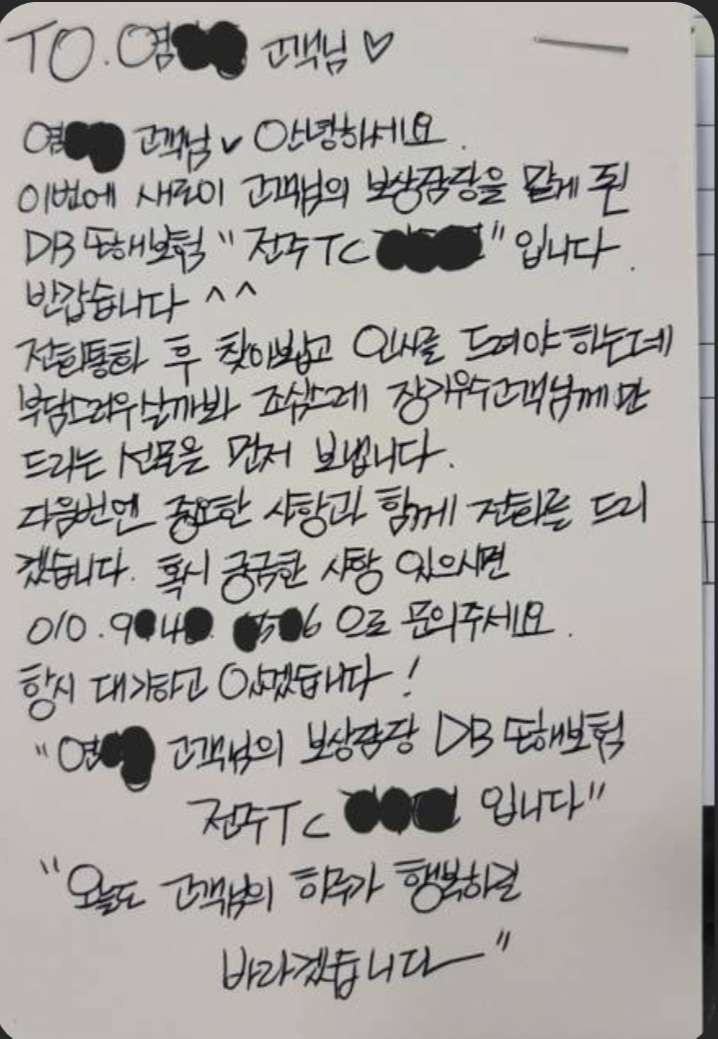 TO. 염 고객님 ♡
염 고객님 ♥ 안녕하세요.
이번에 새로이 고객님의 보상담당을 맡게 된
DB 손해보험 "전주TC "입니다.
반갑습니다 ^^
전화통화 후 찾아뵙고 인사를 드려야 하는데
부담스러우실까봐 조심스레 장기우수고객님께만
드리는 선물을 먼저 보냅니다.
다음번엔 중요한 사항과 함께 전화를 드리
겠습니다. 혹시 궁금한 사항 있으시면
010. 9 4 5 6 으로 문의주세요.
항시 대기하고 있겠습니다!
"염 고객님의 보상담당 DB 손해보험
전주TC 입니다"
"오늘도 고객님의 하루가 행복하길
바라겠습니다"